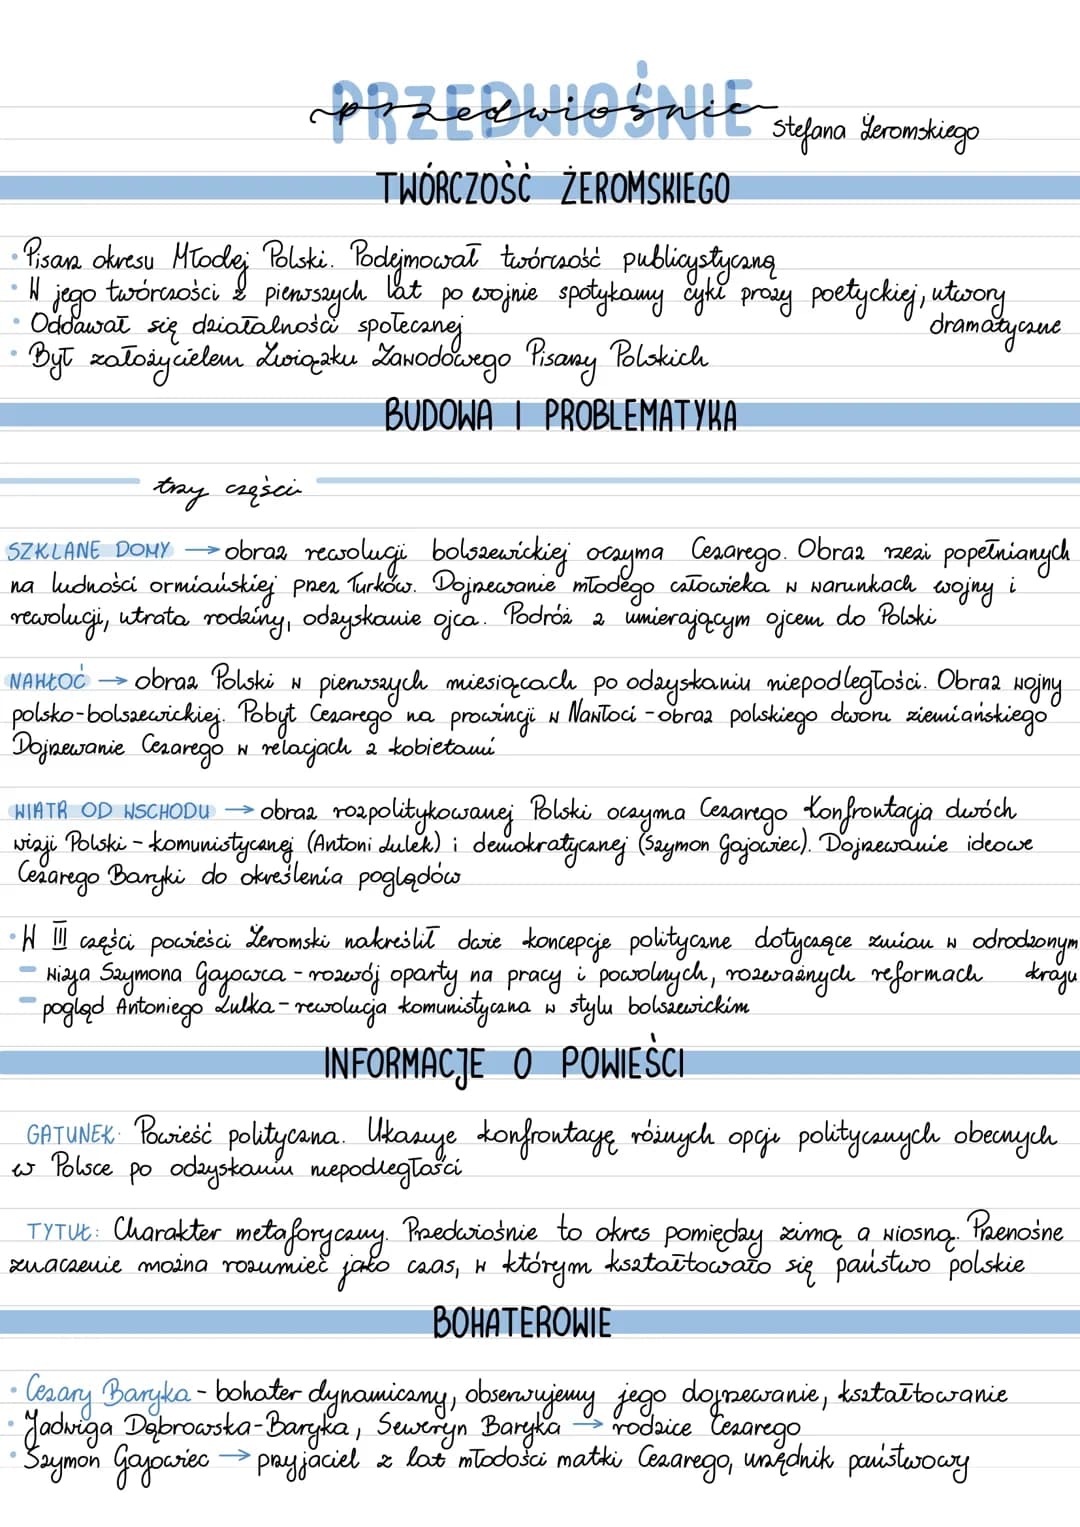 PRZEDWIOŚNIE
przedwiośnie
Stefana Żeromskiego
TWÓRCZOŚĆ ŻEROMSKIEGO
• Pisarz okresu Młodej Polski. Podejmował twórczość publicystyczną
• W jego twórczości z pierwszych lat po wojnie spotykamy cykl prozy poetyckiej, utwory dramatyczne
• Oddawał się działalności społecznej
• Był założycielem Związku Zawodowego Pisarzy Polskich
BUDOWA I PROBLEMATYKA
trzy części
SZKLANE DOMY → obraz rewolucji bolszewickiej oczyma Cezarego. Obraz rzezi popełnianych
na ludności ormiańskiej przez Turków. Dojrzewanie młodego człowieka w warunkach wojny i
rewolucji, utrata rodziny, odzyskanie ojca. Podróż z umierającym ojcem do Polski
NAWŁOĆ → obraz Polski w pierwszych miesiącach po odzyskaniu niepodległości. Obraz wojny
polsko-bolszewickiej. Pobyt Cezarego na prowincji w Nawłoci - obraz polskiego dworu ziemiańskiego
Dojrzewanie Cezarego w relacjach z kobietami
WIATR OD WSCHODU → obraz rozpolitykowanej Polski oczyma Cezarego Konfrontacja dwóch
wizji Polski - komunistycznej (Antoni Lulek) i demokratycznej (Szymon Gajowiec). Dojrzewanie ideowe
Cezarego Baryki do określenia poglądów
• W III części powieści Żeromski nakreślił dwie koncepcje polityczne dotyczące zmian w odrodzonym kraju
- wizja Szymona Gajowca - rozwój oparty na pracy i powolnych, rozważnych reformach
- pogląd Antoniego Lulka - rewolucja komunistyczna w stylu bolszewickim
INFORMACJE O POWIEŚCI
GATUNEK: Powieść polityczna. Ukazuje konfrontację różnych opcji politycznych obecnych
w Polsce po odzyskaniu niepodległości
TYTUŁ: Charakter metaforyczny. Przedwiośnie to okres pomiędzy zimą a wiosną. Przenośne
znaczenie można rozumieć jako czas, w którym kształtowało się państwo polskie
BOHATEROWIE
• Cezary Baryka - bohater dynamiczny, obserwujemy jego dojrzewanie, kształtowanie
• Jadwiga Dąbrowska-Baryka, Seweryn Baryka → rodzice Cezarego
• Szymon Gajowiec → przyjaciel z lat młodości matki Cezarego, urzędnik państwowy